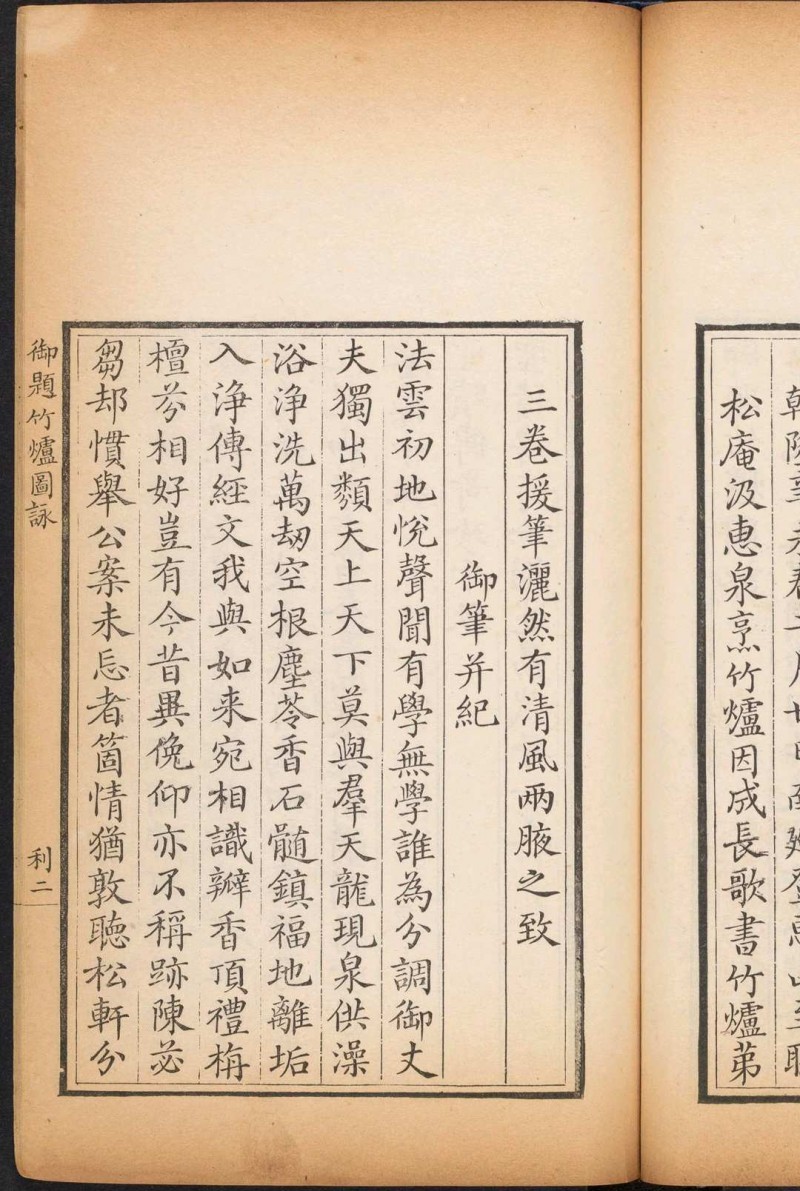 松庵汲惠泉烹竹爐因成長歌書竹爐苐
三卷援筆灑然有清風兩腋之致
御筆并紀
法雲初地悅聲聞有學無學誰為分調御丈
夫獨出類天上天下莫與羣天龍現泉供澡
浴淨洗萬劫空根塵苓香石髓鎮福地離垢
入淨傳經文我與如来宛相識瓣香頂禮栴
檀芬相好豈有今昔異俛仰亦不稱跡陳苾
芻却慣舉公案未忘者箇情猶敦聽松軒分
御題竹爐圖詠
利二